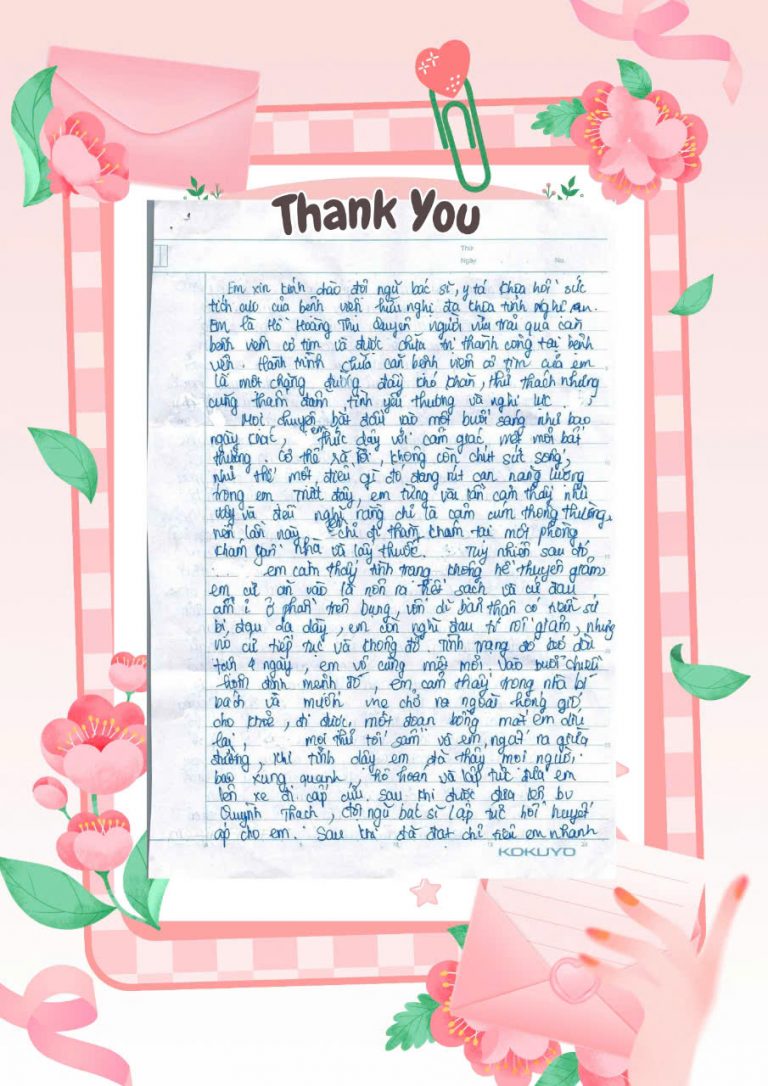 Thank You
Thứ
Ngày
No.
Em xin kính chào đội ngũ bác sĩ, y tá khoa hồi sức
tích cực của bệnh viện hữu nghị đa khoa tỉnh nghệ an.
Em là Hồ Hoàng Thu Quyên người vừa trải qua căn
bệnh viêm cơ tim và được chữa trị thành công tại bệnh
viện. Hành trình chữa căn bệnh viêm cơ tim của em
là một chặng đường đầy khó khăn, thử thách nhưng
cũng thấm đẫm tình yêu thương và nghị lực.
Mọi chuyện bắt đầu vào một buổi sáng như bao
ngày khác, em thức dậy với cảm giác mệt mỏi bất
thường. Cơ thể rã rời, không còn chút sức sống,
như thể một điều gì đó đang rút cạn năng lượng
trong em. Trước đây, em từng vài lần cảm thấy như
vậy và đều nghĩ rằng chỉ là cảm cúm thông thường
nên lần này em chỉ đi thăm khám tại một phòng
khám gần nhà và lấy thuốc. Tuy nhiên sau đó
em cảm thấy tình trạng không hề thuyên giảm
em cứ ăn vào là nôn ra hết sạch và cứ đau
âm ỉ ở phần trên bụng, vốn dĩ bản thân có tiền sử
bị đau dạ dày, em còn nghĩ đau tí rồi giảm, nhưng
nó cứ tiếp tục và không đỡ. Tình trạng đó kéo dài
tới 4 ngày, em vô cùng mệt mỏi. Vào buổi chiều
hôm định mệnh đó, em cảm thấy trong nhà bí
bách và muốn mẹ chở ra ngoài hóng gió
cho khỏe, đi được một đoạn bỗng mắt em díu
lại, mọi thứ tối sầm và em ngất ra giữa
đường, khi tỉnh dậy em đã thấy mọi người
bao xung quanh, hô hoán và lập tức đưa em
lên xe đi cấp cứu. Sau khi được đưa lên bv
Quỳnh Thạch, đội ngũ bác sĩ lập tức hồi huyết
áp cho em. Sau khi đã đạt chỉ tiêu em nhanh
KOKUYO